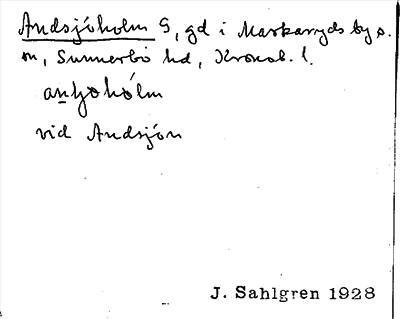 Andsjöholm S, gd i Markaryds by o.
sn, Sunnerbo hd, Kronob. l.
vid Andsjön
J. Sahlgren 1928